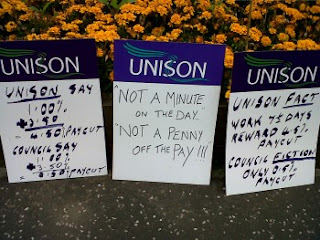 UNISON
UNISON SAY
1.00%
+3.50
= 4.50% PAYCUT
COUNCIL SAY
1.00%
+3.50%
PAYCUT
UNISON
"NOT A MINUTE
ON THE DAY."
"NOT A PENNY
OFF THE PAY !!!"
UNISON
UNISON FACT
WORK DAYS
REWARD 4.5%
PAYCUT
COUNCIL FICTION
ONLY
PAYCUT